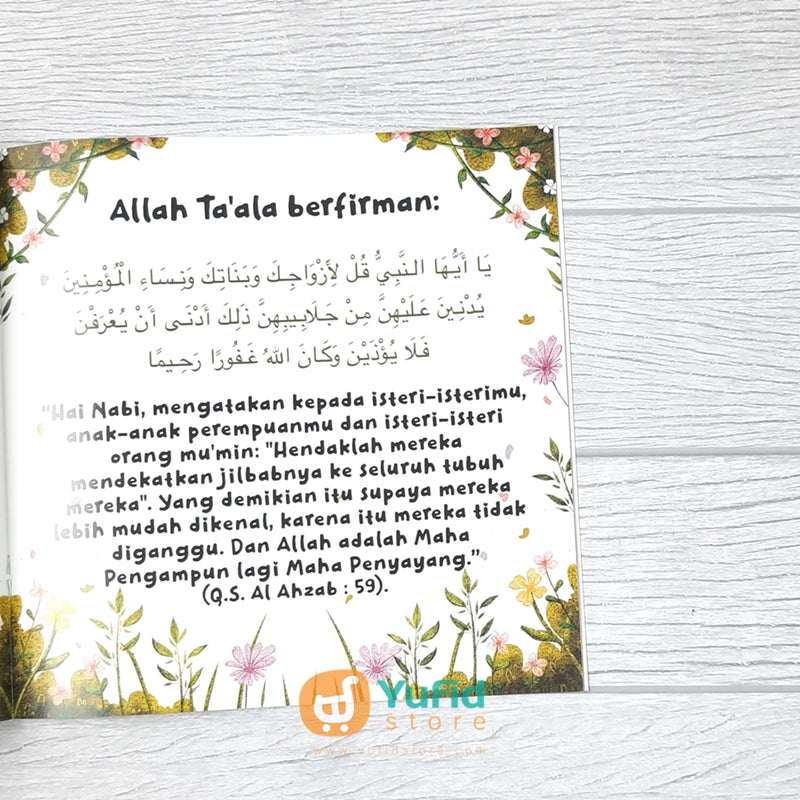 Allah Ta'ala berfirman:
يَا أَيُّهَا النَّبِيُّ قُلْ لِأَزْوَاجِكَ وَبَنَاتِكَ وَنِسَاءِ الْمُؤْمِنِينَ
يُدْنِينَ عَلَيْهِنَّ مِنْ جَلَابِيبِهِنَّ ذَلِكَ أَدْنَى أَنْ يُعْرَفْنَ
فَلَا يُؤْذَيْنَ وَكَانَ اللهُ غَفُورًا رَحِيمًا
"Hai Nabi, mengatakan kepada isteri-isterimu,
anak-anak perempuanmu dan isteri-isteri
orang mu'min: "Hendaklah mereka
mendekatkan jilbabnya ke seluruh tubuh
mereka". Yang demikian itu supaya mereka
lebih mudah dikenal, karena itu mereka tidak
diganggu. Dan Allah adalah Maha
Pengampun lagi Maha Penyayang."
(Q.S. Al Ahzab : 59).
Yufid
store
www.yufidstore.com